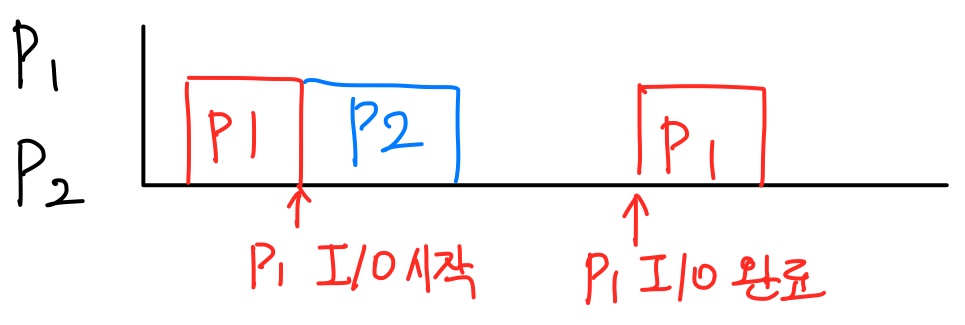 P1
P2
P1 P2 P1
P1 I/O 시작
P1 I/O 완료